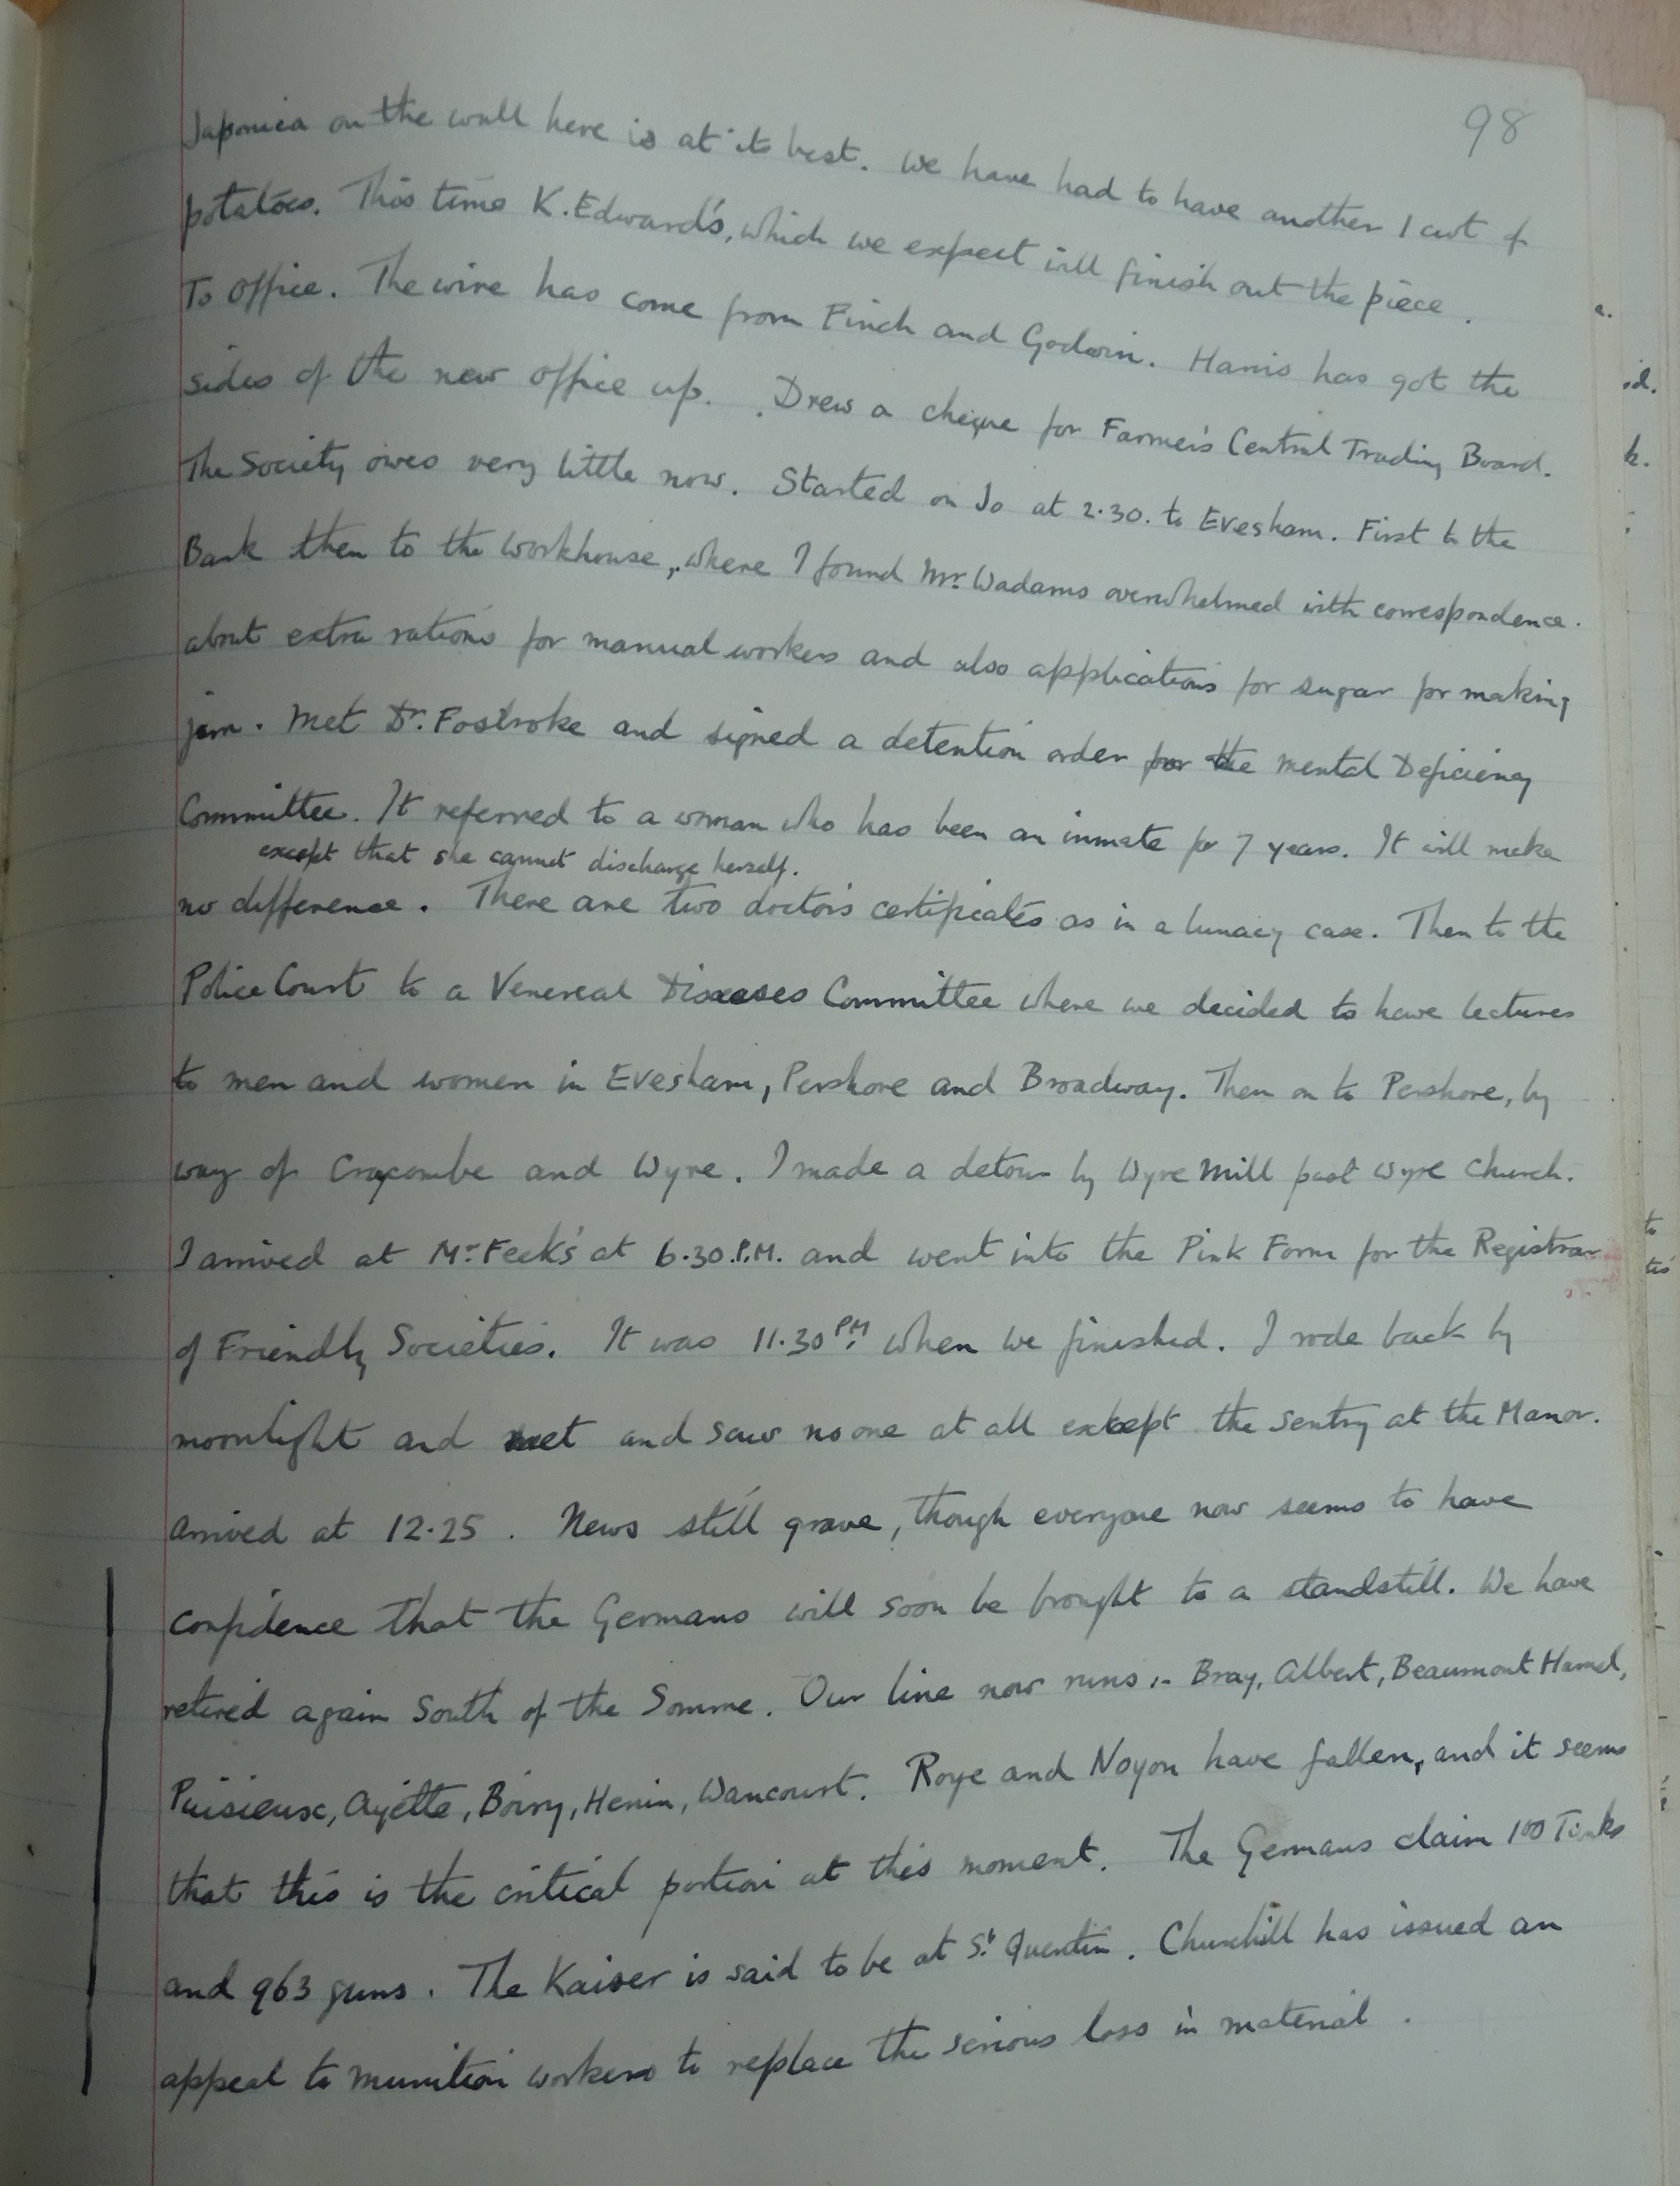 98
Japonica on the wall here is at its best. We have had to have another 1 cwt of
potatoes. This time K. Edward's, which we expect will finish out the piece.
To Office. The wire has come from Finch and Godwin. Harris has got the
sides of the new office up. Drew a cheque for Farmer's Central Trading Board.
The Society owes very little now. Started on Jo at 2.30. to Evesham. First to the
Bank then to the Workhouse, where I found Mr. Wadams overwhelmed with correspondence.
about extra rations for manual workers and also applications for sugar for making
jam. Met Dr. Fosbroke and signed a detention order for the Mental Deficiency
Committee. It referred to a woman who has been an inmate for 7 years. It will make
except that she cannot discharge herself.
no difference. There are two doctor's certificates as in a lunacy case. Then to the
Police Court to a Venereal Diseases Committee where we decided to have lectures
to men and women in Evesham, Pershore and Broadway. Then on to Pershore, by
way of Cracombe and Wyre. I made a detour by Wyre Mill past Wyre Church.
I arrived at Mr. Feek's at 6.30.P.M. and went into the Pink Form for the Registrar
of Friendly Societies. It was 11.30 P.M. when we finished. I rode back by
moonlight and met and saw no one at all except the sentry at the Manor.
Arrived at 12.25. News still grave, though everyone now seems to have
confidence that the Germans will soon be brought to a standstill. We have
retired again South of the Somme. Our line now runs :- Bray, Albert, Beaumont Hamel,
Puisieux, Ayette, Boiry, Henin, Wancourt. Roye and Noyon have fallen, and it seems
that this is the critical portion at this moment. The Germans claim 100 Tanks
and 963 guns. The Kaiser is said to be at St. Quentin. Churchill has issued an
appeal to munition workers to replace the serious loss in material.